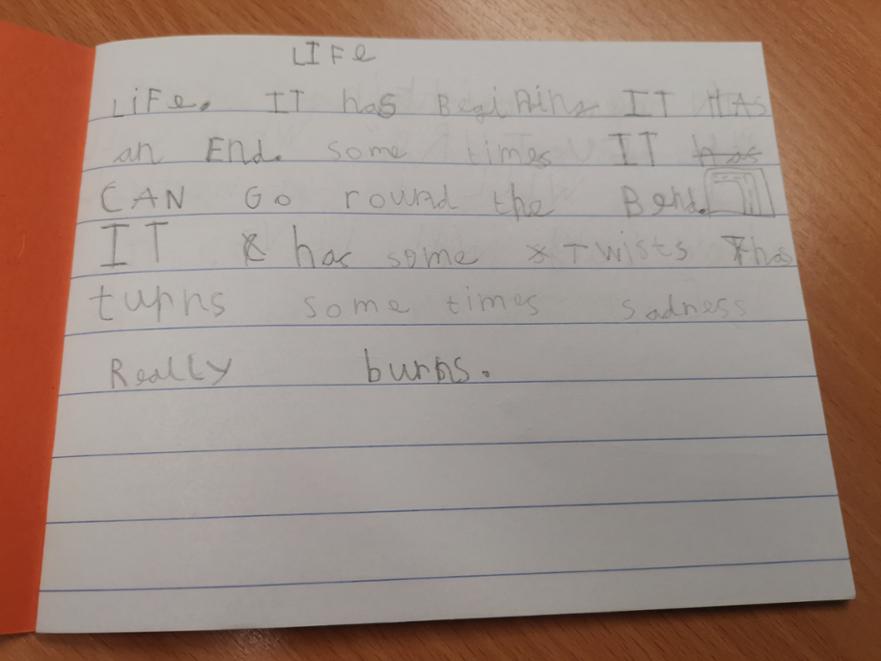 LIFe
LIFe. IT has BegiNing IT HAS
an End. some times IT has
CAN Go round the Bend.
IT has some Twists has
turns some times sadness
ReaLLY burns.